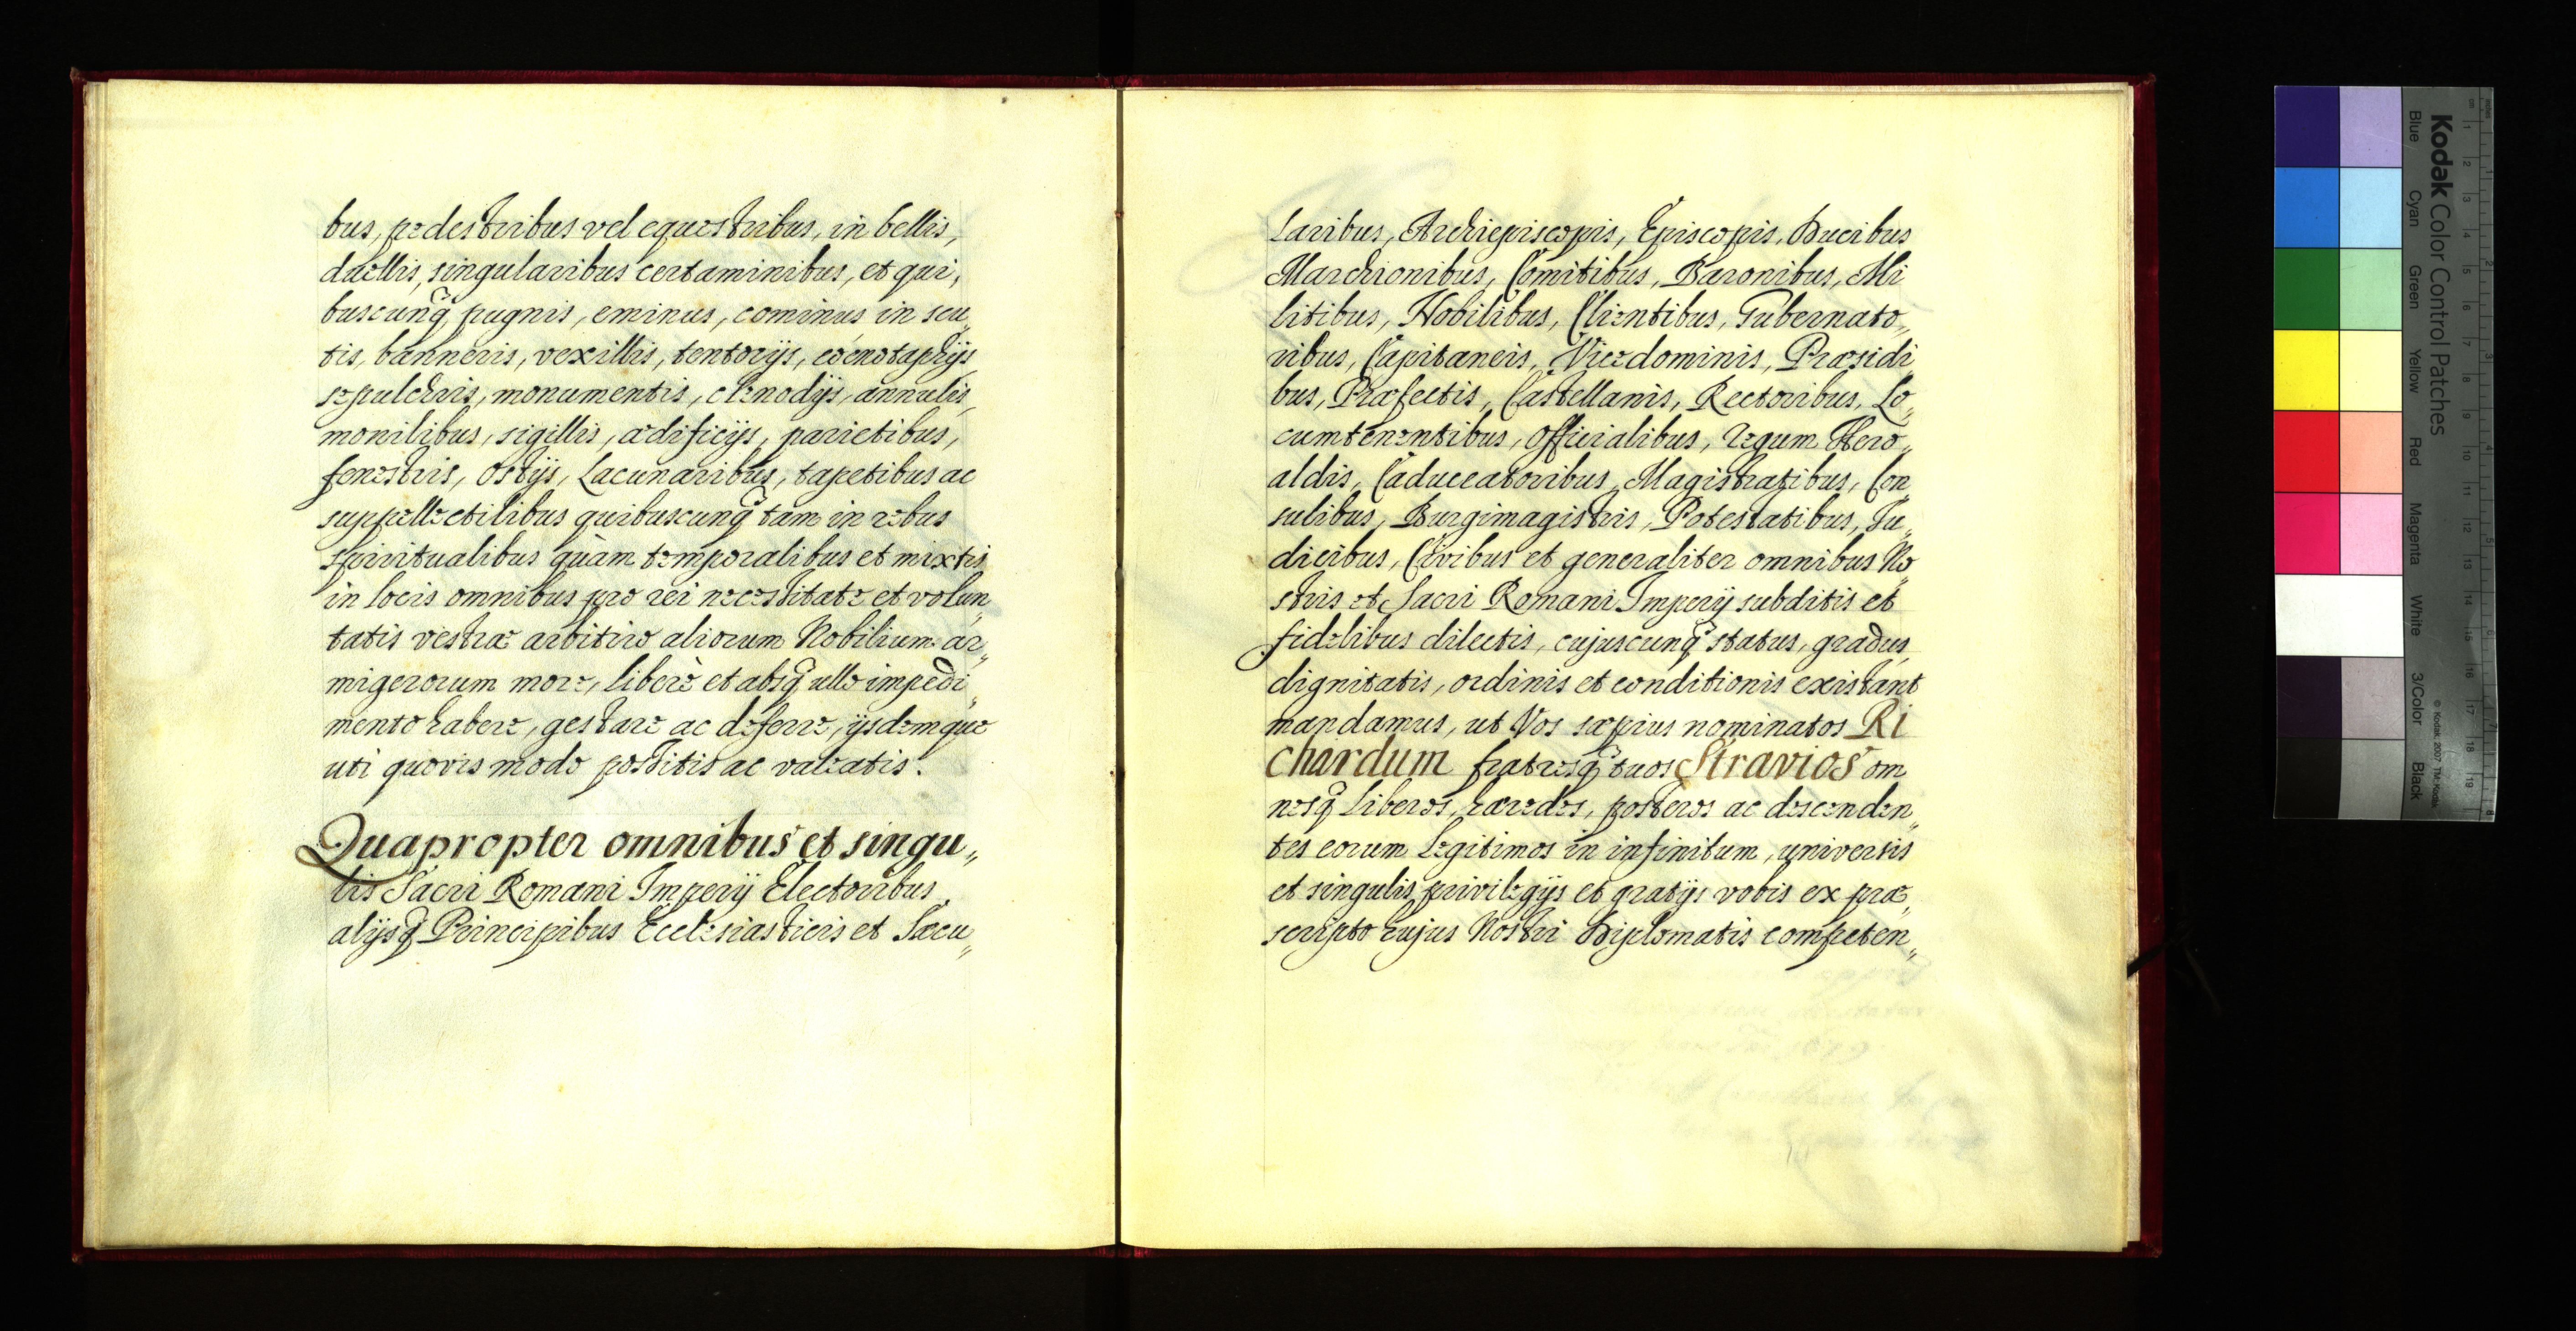 bus, pedestribus vel equestribus, in bellis,
duellis, singularibus certaminibus, et qui,
buscunq, pugnis, eminus, cominus in scu„
tis, banneris, vexillis, tentorijs, coenotaphijs
sepulchris, monumentis, clenodijs, annulis,
monilibus, sigillis, ædificijs, parietibus,
fenestris, ostijs, Lacunaribus, tapetibus ac
suppellectilibus quibuscunq tam in rebus
spiritualibus quàm temporalibus et mixtis
in locis omnibus pro rei necessitate et volun„
tatis vestræ arbitrio aliorum Nobilium ar„
migerorum more, liberè et absq ullo impedi„
mento habere, gestare ac deferre, ijsdemque
uti quovis modo possitis ac valeatis.
Quapropter omnibus et singu„
lis Sacri Romani Imperij Electoribus,
alijsq Principibus Ecclesiasticis et Sæcu„
laribus, Archiepiscopis, Episcopis, Ducibus
Marchionibus, Comitibus, Baronibus, Mi
litibus, Nobilibus, Clientibus, Gubernato„
ribus, Capitaneis, Vicedominis, Præsidi„
bus, Præfectis, Castellanis, Rectoribus, Lo„
cumtenentibus, Officialibus, regum Hero„
aldis, Caduceatoribus, Magistratibus, Con„
sulibus, Burgimagistris, Potestatibus, Ju„
dicibus, Civibus et generaliter omnibus No„
stris et Sacri Romani Imperij subditis et
fidelibus dilectis, cujuscunq status, gradus,
dignitatis, ordinis et conditionis existant
mandamus, ut Vos sæpius nominatos Ri
chardum fratresq tuos Stravios om„
nesq Liberos, hæredes, posteros ac descenden„
tes eorum Legitimos in infinitum, universis
et singulis privilegijs et gratijs vobis ex præ„
scripto hujus Nostri Diplomatis competen„
Kodak Color Control Patches
Blue
Cyan
Green
Yellow
Red
Magenta
White
3/Color
Black
© Kodak, 2007 TM: Kodak